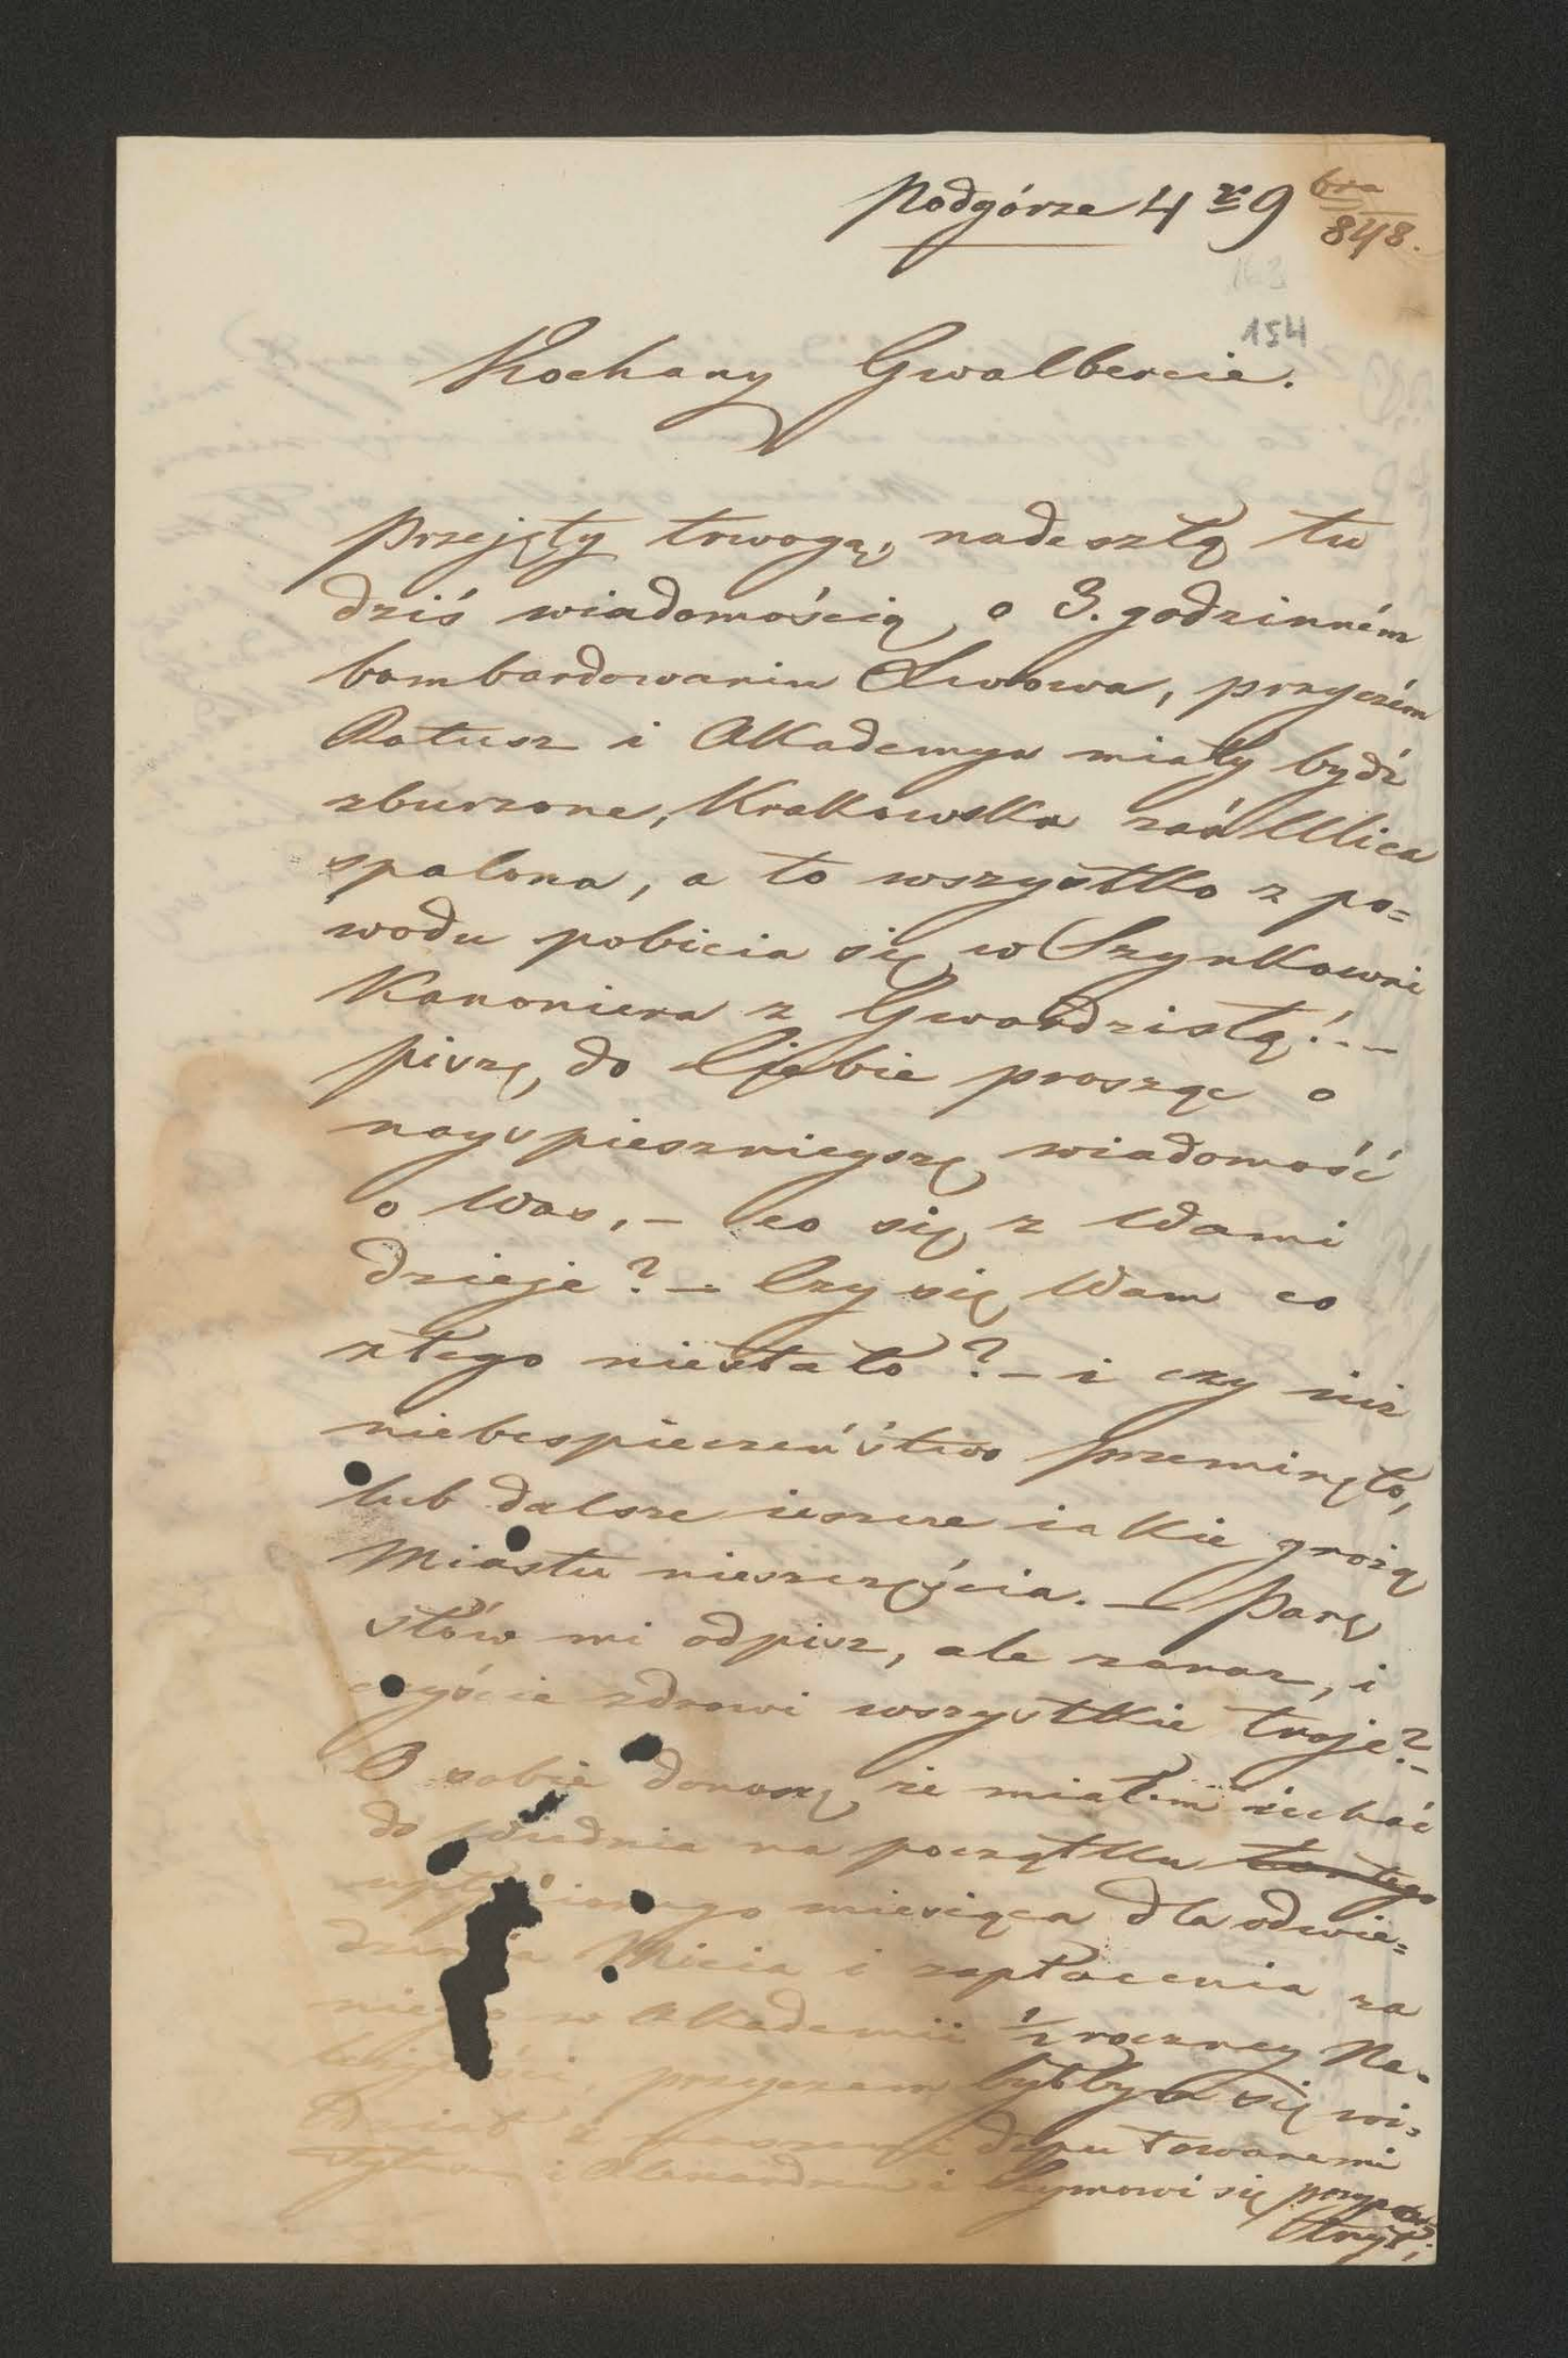 Podgórze 4 го 9 bra
848.
154
Kochany Gwalbercie.
Przejęty trwogą, nadeszłą tu
dziś wiadomością, o 3. godzinném
bombardowaniu Lwowa, przyczém
Ratusz i Akademya miały bydź
zburzone, Krakowska zaś Ulica
spalona, a to wszystko z po=
wodu pobicia się w Szynkowni
Kanoniera z Gwardzistą!..–
piszę, do Ciebie prosząc o
nayspieszniejszę wiadomość
o Was, – co się z Wami
dzieje? – Czy się Wam co
złego niestało? – i czy iuż
niebespieczeństwo przeminęło,
lub dalsze ieszcze iakie grożą
Miastu nieszczęścia. – Parę
słów mi odpisz, ale zaraz, i
czyście zdrowi wszystkie troje? –
O sobie donoszę, że miałem iechać
do Wiednia na początku
miesiąca dla odwie=
dzenia Micia i zapłacenia za
niego w Akademii ½ roczney Na=
przyczem byłbym się wi=
dział z deputowanemi
i się przypa=
trzył;